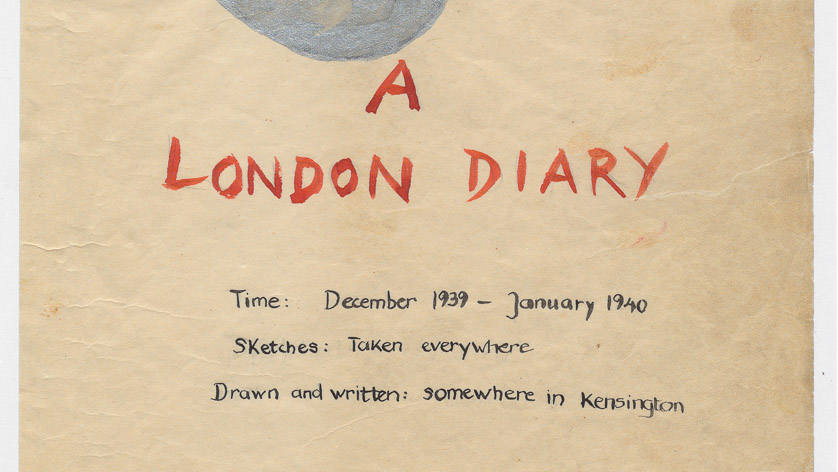 A
LONDON DIARY
Time: December 1939 – January 1940
Sketches: Taken everywhere
Drawn and written: somewhere in Kensington